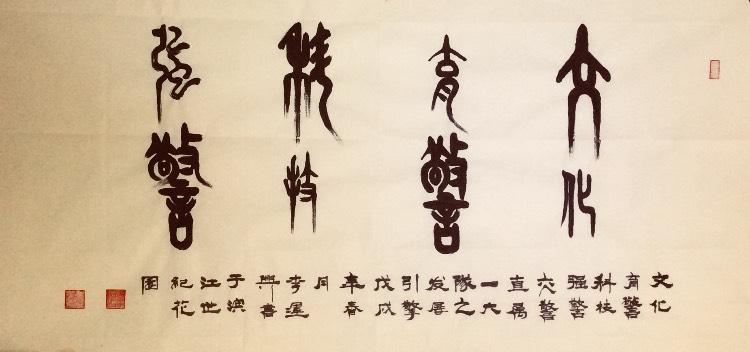 文化
育警
科技
强警
文化
育警
科技
强警
交警
直属
一大
隊之
发展
引擎
戊戌
年春
月
李運
興書
于滨
江世
紀花
園